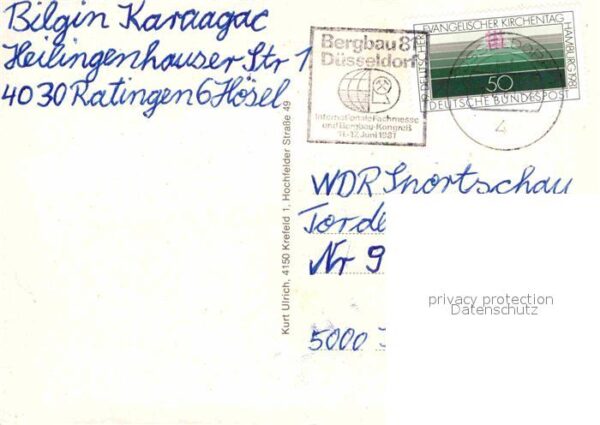 Bilgin Karaagac
Heilingenhauser Str 1
4030 Ratingen 6 Hösel
Bergbau 81
Düsseldorf
Internationale Fachmesse
und Bergbau-Kongreß
11.-12. Juni 1981
19. DEUTSCHER EVANGELISCHER KIRCHENTAG HAMBURG 1981
50
DEUTSCHE BUNDESPOST
4
Kurt Ulrich, 4150 Krefeld 1, Hochfelder Straße 49
WDR Snortschau
Torde
Nr 9
5000
privacy protection
Datenschutz